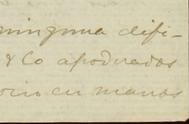 ninguna difi-
& Co apoderados
en manos